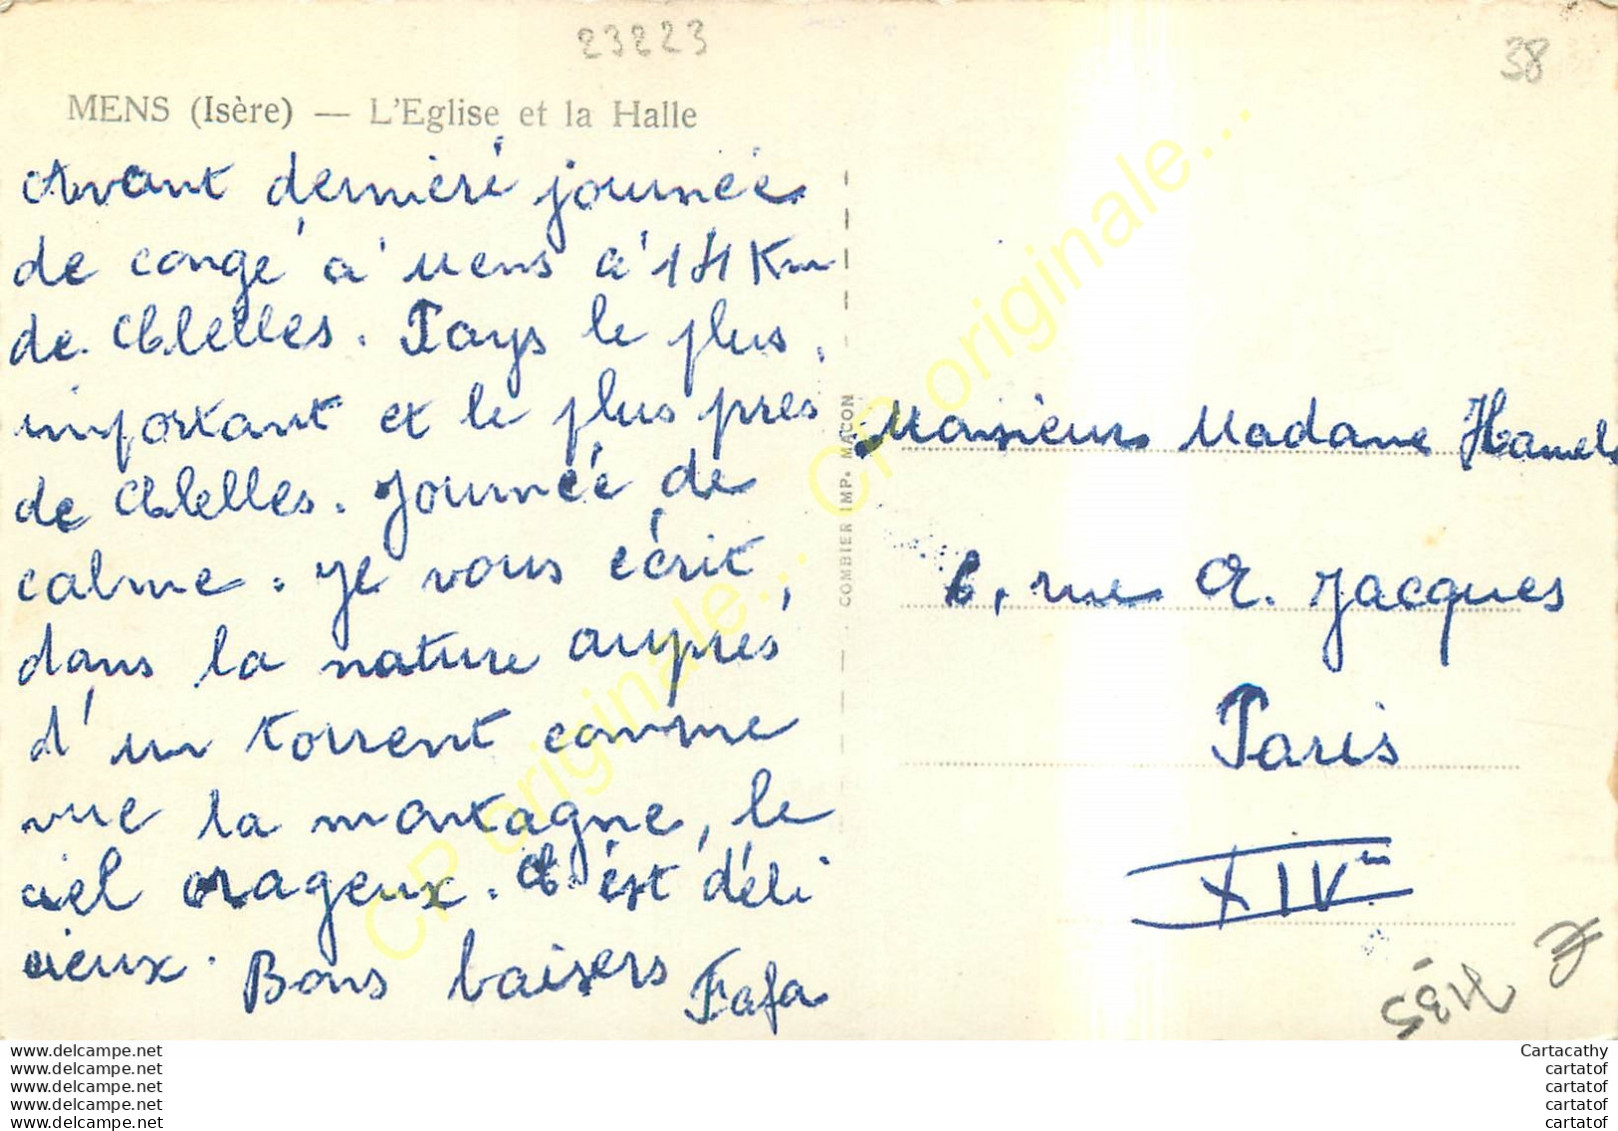 23223
38
MENS (Isère) — L'Eglise et la Halle
Avant derniére journée
de congé à Mens à 14 Km
de Clelles. Pays le plus
important et le plus pres
de Clelles. Journée de
calme. Je vous écrit
dans la nature auprés
d'un torrent comme
vue la montagne, le
ciel orageux. C'est déli
cieux. Bons baisers Fafa
COMBIER IMP. MACON
Monsieur Madame Hamel
6, rue A. Jacques
Paris
XIVm
CP originale... CP originale...
www.delcampe.net
www.delcampe.net
www.delcampe.net
www.delcampe.net
www.delcampe.net
Cartacathy
cartatof
cartatof
cartatof
cartatof